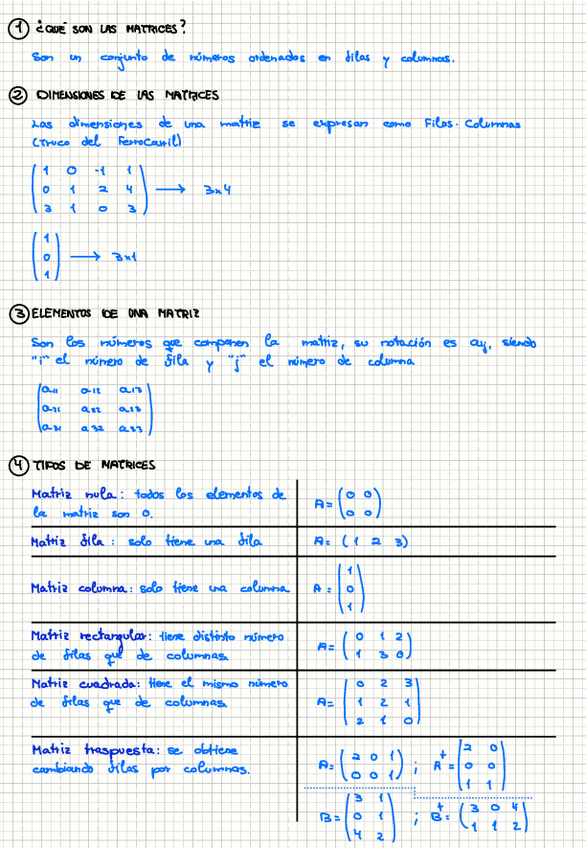 ① ¿QUÉ SON LAS MATRICES?
Son un conjunto de números ordenados en filas y columnas.
② DIMENSIONES DE LAS MATRICES
Las dimensiones de una matriz se expresan como Filas · Columnas
(Truco del Ferrocarril)
1 0 -1 1
0 1 2 4 → 3x4
3 1 0 3
1
0 → 3x1
1
③ ELEMENTOS DE UNA MATRIZ
Son los números que componen la matriz, su notación es aij, siendo
"i" el número de fila y "j" el número de columna
a11 a12 a13
a21 a22 a23
a31 a32 a33
④ TIPOS DE MATRICES
Matriz nula: todos los elementos de
la matriz son 0.
A= (0 0
0 0)
Matriz fila: solo tiene una fila
A= (1 2 3)
Matriz columna: solo tiene una columna
A= (1
0
1)
Matriz rectangular: tiene distinto número
de filas que de columnas.
A= (0 1 2
1 3 0)
Matriz cuadrada: tiene el mismo número
de filas que de columnas.
A= (0 2 3
1 2 1
2 1 0)
Matriz traspuesta: se obtiene
cambiando filas por columnas.
A= (2 0 1 ; At = (2 0
0 0 1) 0 0
1 1)
B= (3 1 ; Bt = (3 0 4
0 1 1 1 2)
4 2)